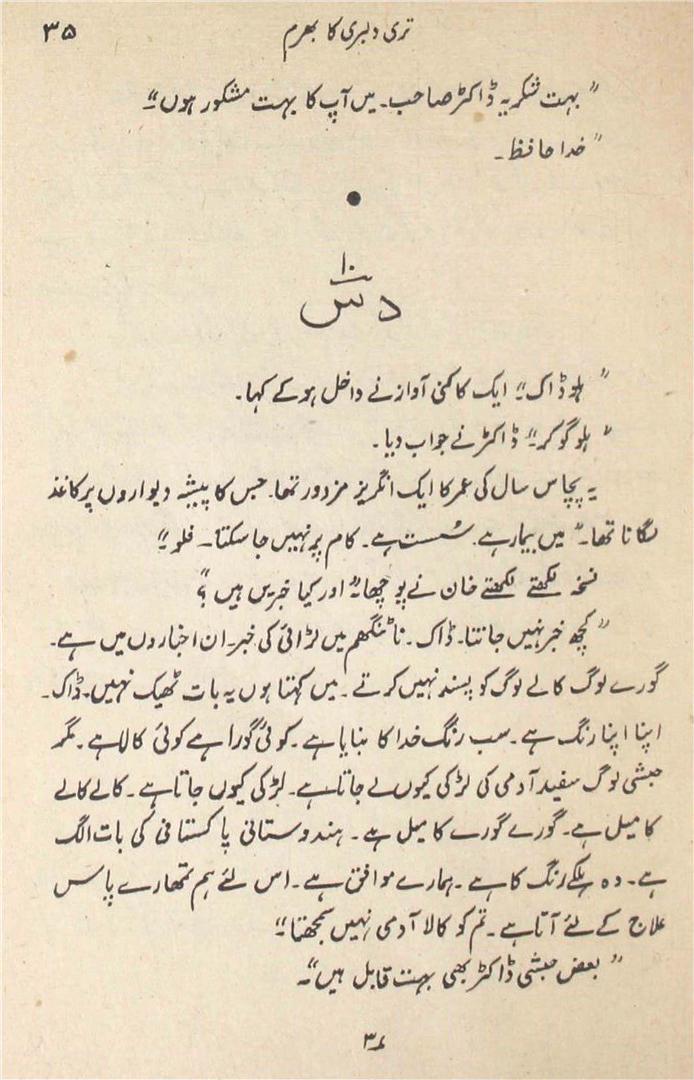 تری دلبری کا بھرم ۳۵
"بہت شکریہ ڈاکٹر صاحب۔ میں آپ کا بہت مشکور ہوں"۔
"خدا حافظ۔
●
۱۰
دس
"ہلو ڈاک"۔ ایک کاکنی آواز نے داخل ہو کے کہا۔
"ہلو گوکر"۔ ڈاکٹر نے جواب دیا۔
یہ پچاس سال کی عمر کا ایک انگریز مزدور تھا۔ جس کا پیشہ دیواروں پر کاغذ
لگانا تھا۔ "میں بیمار ہے۔ سُست ہے۔ کام پر نہیں جا سکتا۔ فلو"۔
نسخہ لکھتے لکھتے خان نے پوچھا۔ "اور کیا خبریں ہیں؟"
"کچھ خبر نہیں جانتا۔ ڈاک۔ ناٹنگھم میں لڑائی کی خبر۔ ان اخباروں میں ہے۔
گورے لوگ کالے لوگ کو پسند نہیں کرتے۔ میں کہتا ہوں یہ بات ٹھیک نہیں۔ ڈاک۔
اپنا اپنا رنگ ہے۔ سب رنگ خدا کا بنایا ہے۔ کوئی گورا ہے کوئی کالا ہے۔ مگر
حبشی لوگ سفید آدمی کی لڑکی کیوں لے جاتا ہے۔ لڑکی کیوں جاتا ہے۔ کالے کالے
کا میل ہے۔ گورے گورے کا میل ہے۔ ہندوستانی پاکستانی کی بات الگ
ہے۔ وہ ہلکے رنگ کا ہے۔ ہمارے موافق ہے۔ اس لئے ہم تمھارے پاس
علاج کے لئے آتا ہے۔ تم کو کالا آدمی نہیں سمجھتا"۔
"بعض حبشی ڈاکٹر بھی بہت قابل ہیں"۔